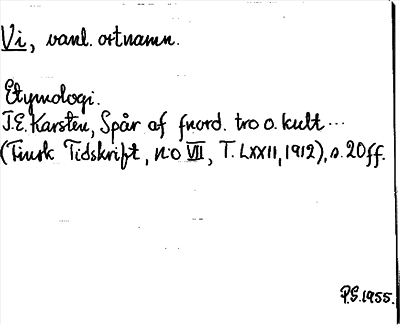 Vi, vanl. ortnamn.
Etymologi.
T.E. Karsten, Spår af fnord. tro o. kult ...
(Finsk Tidskrift, n:o VII, T. LXXII, 1912), s. 20 ff.
P.G. 1955.